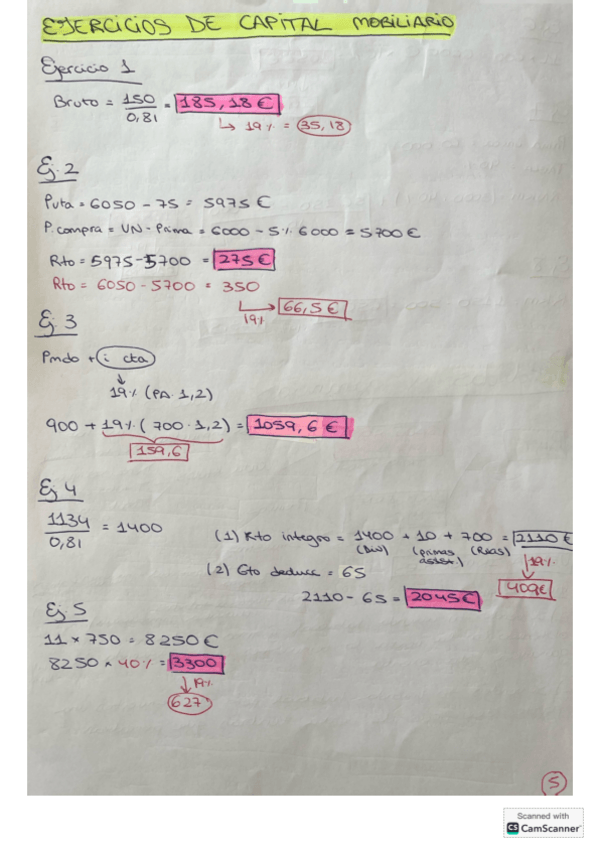 EJERCICIOS DE CAPITAL MOBILIARIO
Ejercicio 1
Bruto = 150 / 0,81 = 185,18 €
↳ 19% = 35,18
Ej. 2
Pvta = 6050 - 75 = 5975 €
P. compra = VN - Prima = 6000 - 5% 6000 = 5700 €
Rto = 5975 - 5700 = 275 €
Rto = 6050 - 5700 = 350
19% → 66,5 €
Ej. 3
Pmdo + i cta
↓
19% (PA. 1,2)
900 + 19% (700 · 1,2) = 1059,6 €
159,6
Ej 4
1134 / 0,81 = 1400
(1) Rto integro = 1400 + 10 + 700 = 2110 €
(Div) (primas asist.) (Reas)
↓ 19%
409€
(2) Gto deducc = 65
2110 - 65 = 2045 €
Ej 5
11 × 750 = 8250 €
8250 × 40% = 3300
↓ 19%
627
5
Scanned with
CS CamScanner